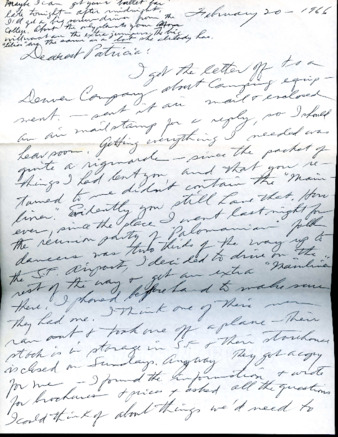 Maybe I can get your ballet for
late tonight - after midnight
I'll get a big from the
College about the only
without the entire jumping in his
the same as a she already has.
February 20 - 1966
Dearest Patricia:
I got the letter off to a
Denver Company - about Camping equip-
ment. - sent it air mail & enclosed
an air mail stamp for a reply, so I should
hear soon. Getting everything I needed was
quite a rigmarole - since the packet of
things I had lent you and that you re-
turned to me didn't contain the "Main-
liner." Evidently you still have that. How-
ever, since the place I went last night for
the reunion party of Palomanian folk
dancers was two thirds of the way up to
the S.F. Airport, I decided to drive on the
rest of the way & get an extra "Mainliner"
there. I phoned beforehand to make sure
they had one. I think one of their men
ran out & took one off a plane - their
stock is in storage in S.F. & their storehouse
is closed on Sundays. Anyway they got a copy
for me - I found the information & wrote
for brochures & prices & asked all the questions
I could think of about things we'd need to